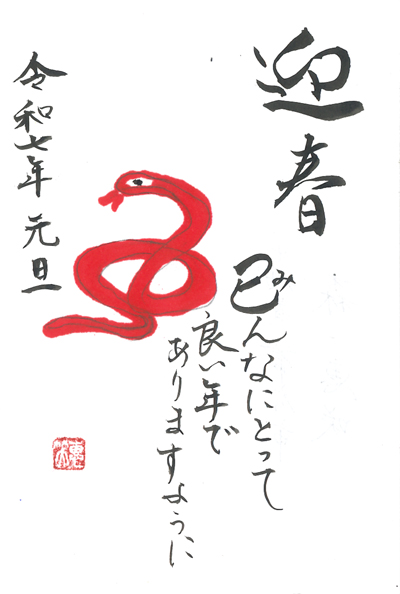 迎春
巳んなにとって
み
良い年で
ありますように
令和七年 元旦